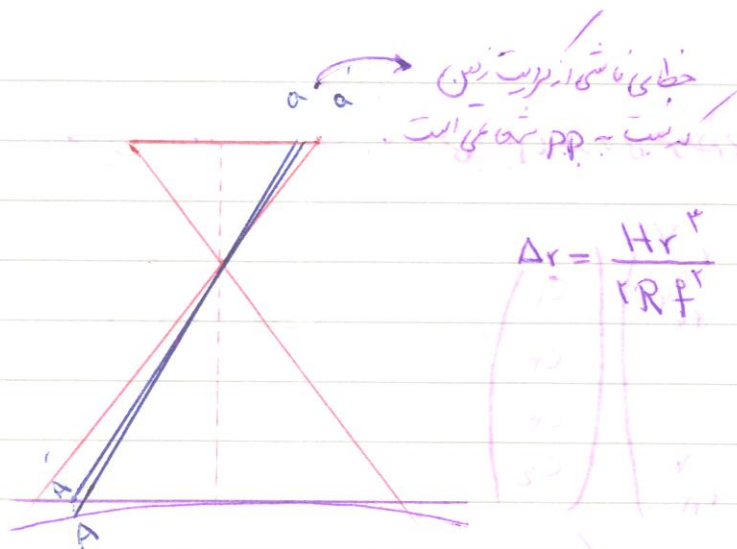 خطای ناشی از کرویت زمین
که نسبت به PP شعاعی است.
a a'
Δr = Hr³ / ۲Rf²
A'
A